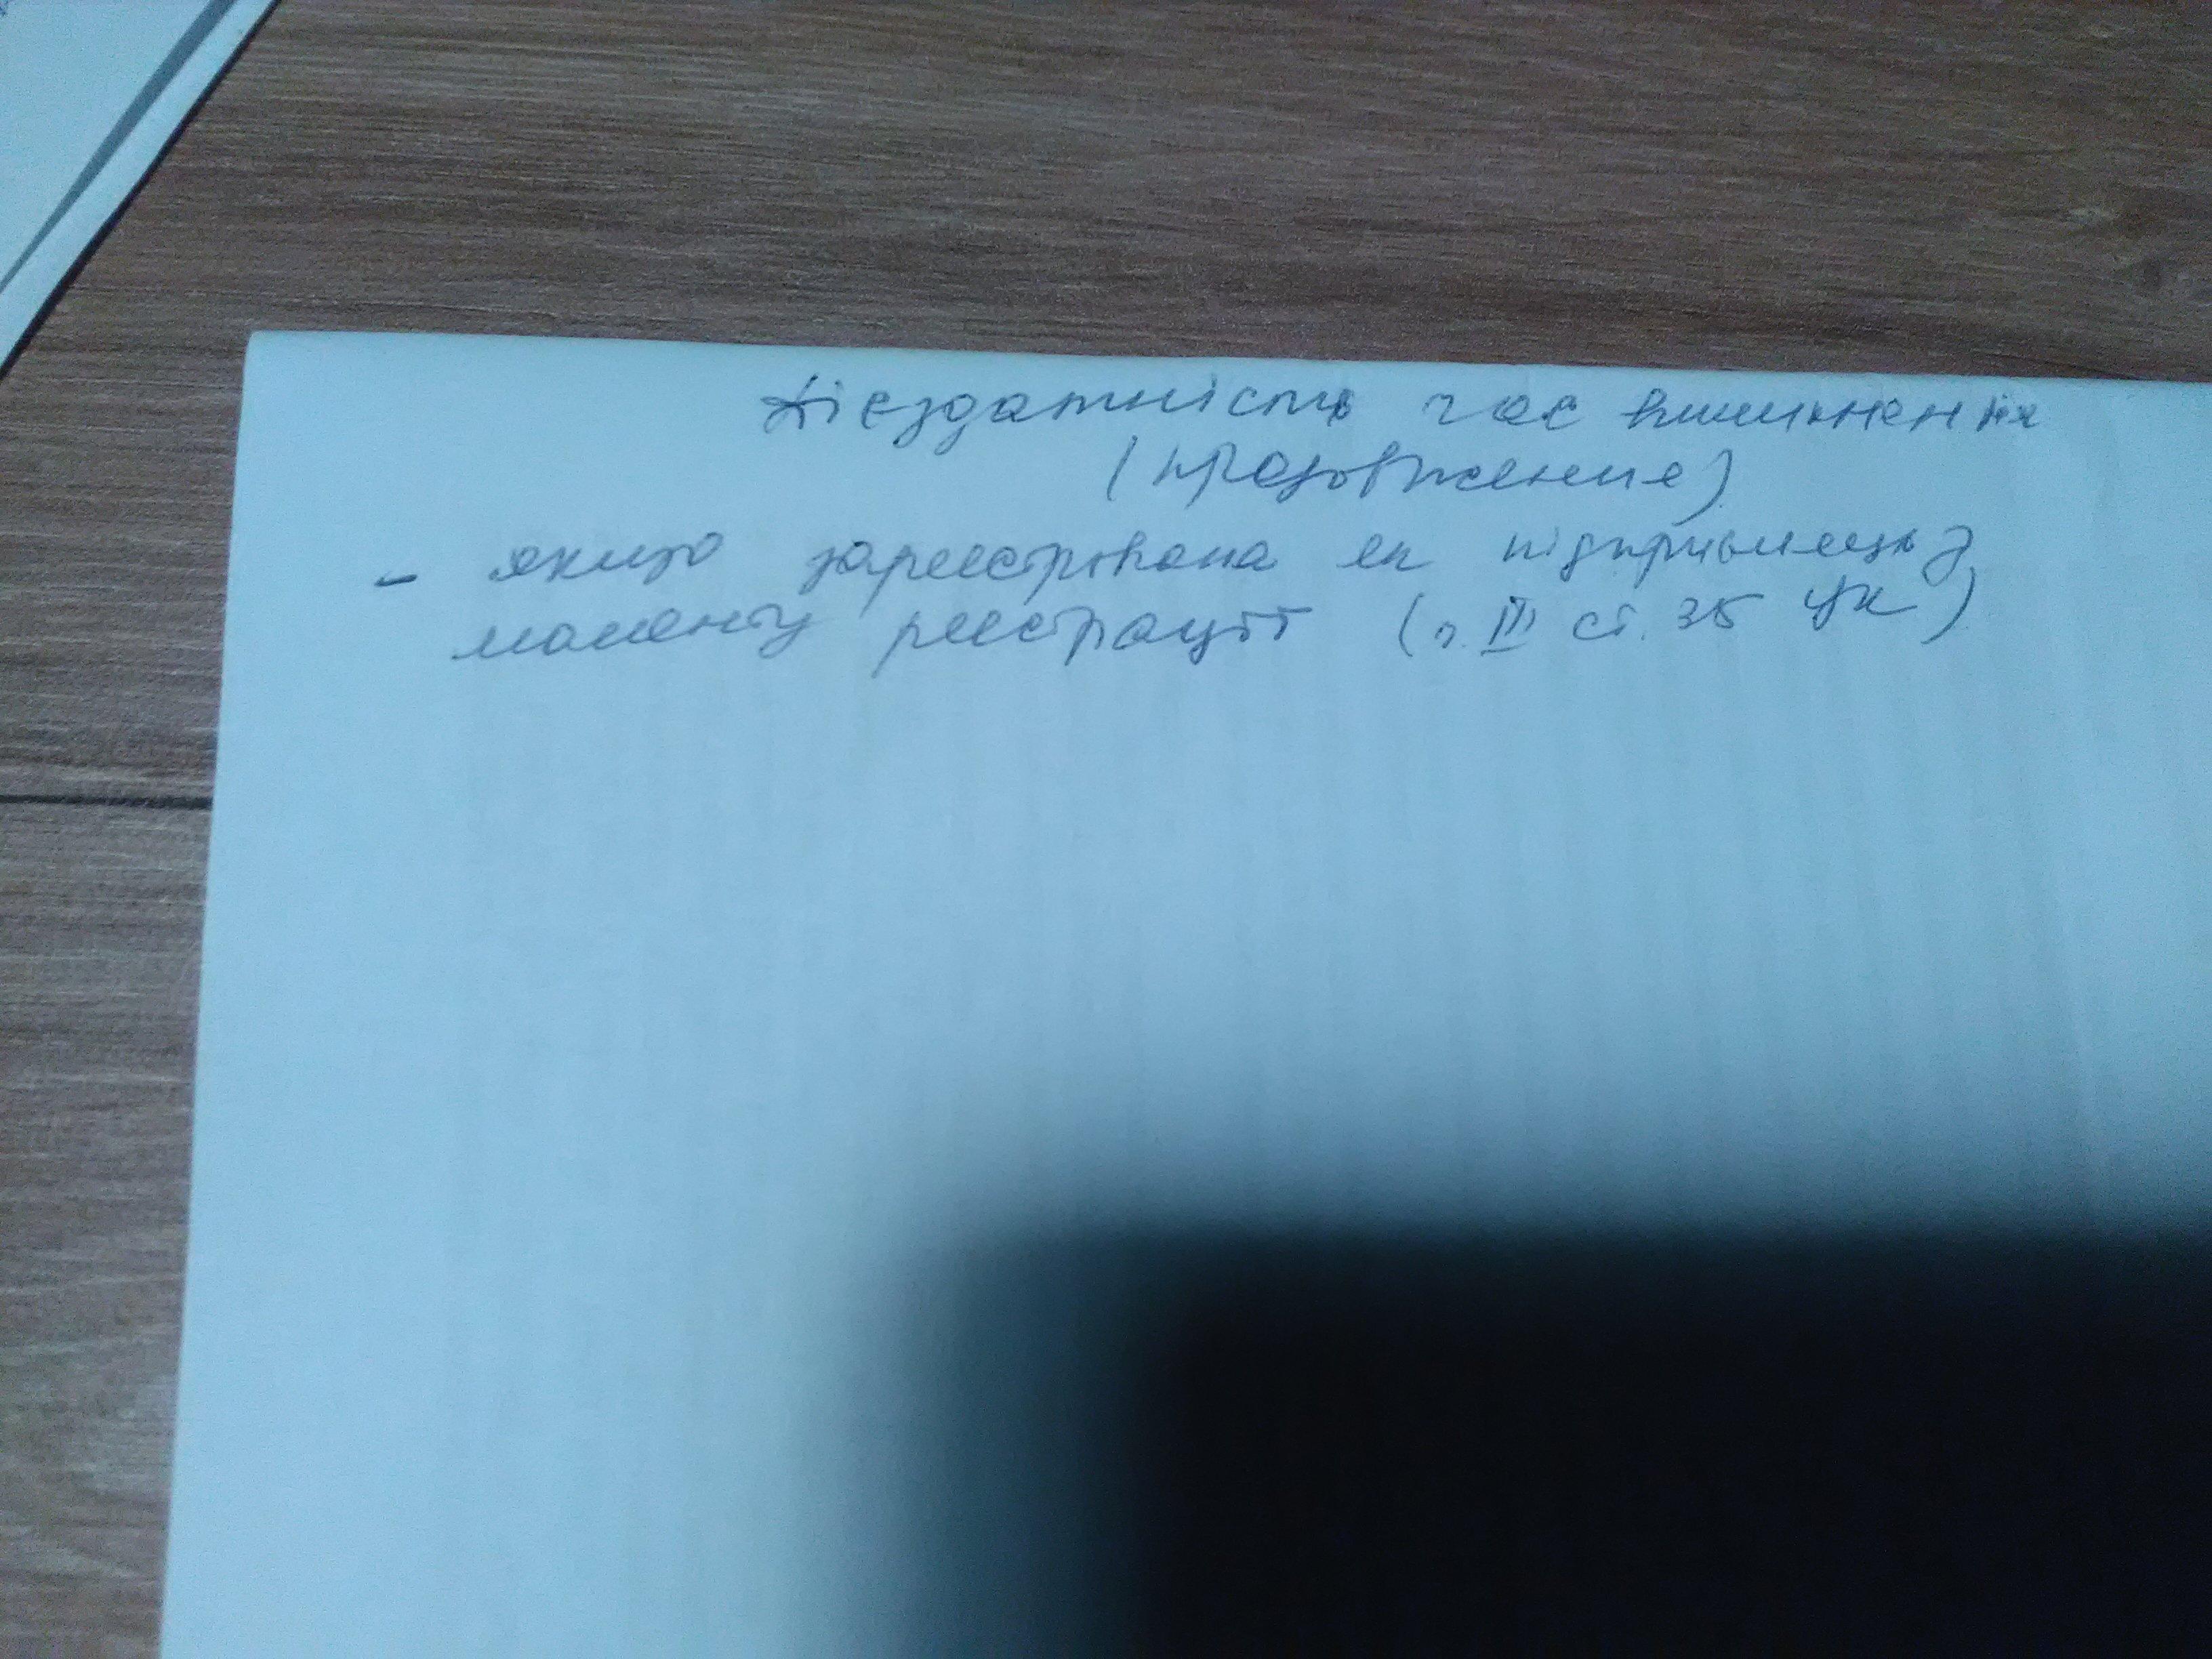 Дієздатність час виникнення
(продовження)
- якщо зареєстрована як підприємець з
моменту реєстрації (п. III ст. 35 ЦК)